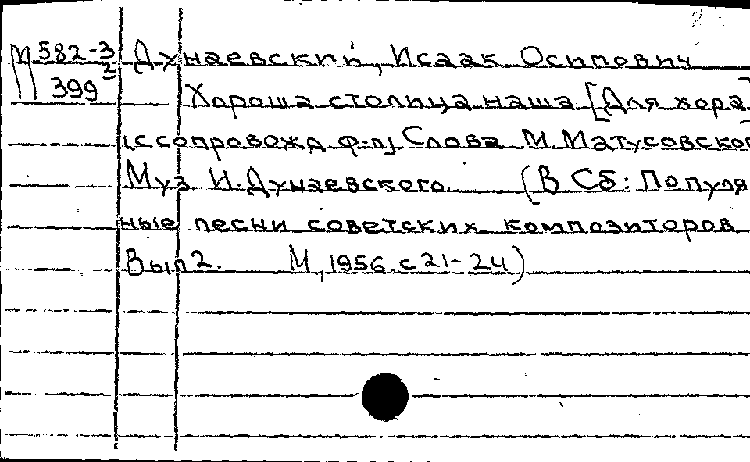 М 582-3 Дунаевский, Исаак Осипович
399 2
Хороша столица наша [Для хора
(с сопровожд. ф-п)] Слова М. Матусовско
Муз. И. Дунаевского. (В сб: Популяр
ные песни советских композиторов
Вып 2. М, 1956. с 21-24)